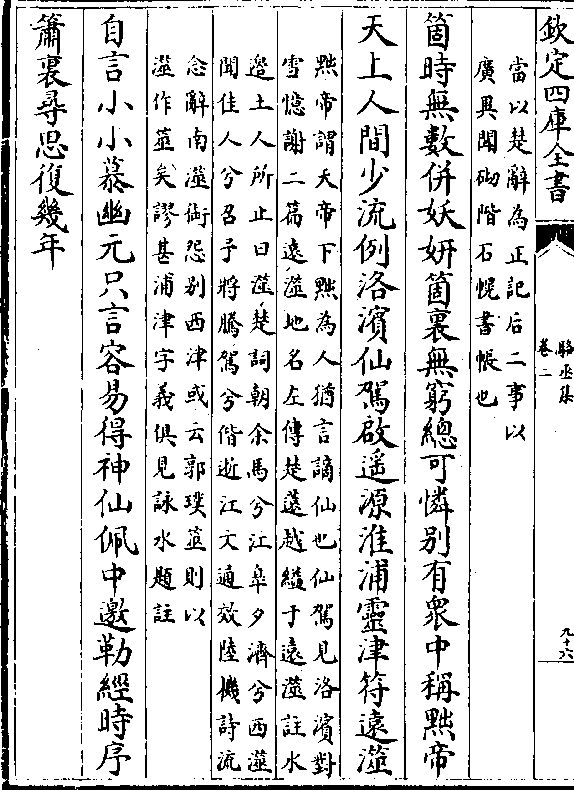 欽定四庫全書
駱丞集
卷二
九十六
當以楚辭為正記后二事以
廣異聞砌階石幌書帳也
箇時無數併妖妍箇裏無窮總可憐別有衆中稱黜帝
天上人間少流例洛濱仙駕啟遥源淮浦靈津符遠澨
黜帝謂天帝下黜為人猶言謫仙也仙駕見洛濱對
雪憶謝二篇遠澨地名左傳楚薳越縊于薳澨註水
邉土人所止曰澨楚詞朝余馬兮江臯夕濟兮西澨
聞佳人兮召予將騰駕兮偕逝江文通效陸機詩流
念辭南澨銜怨别西津或云郭璞筮則以
澨作筮矣謬甚浦津字義俱見詠水題註
自言小小慕幽元只言容易得神仙佩中邀勒經時序
簫裏尋思復幾年